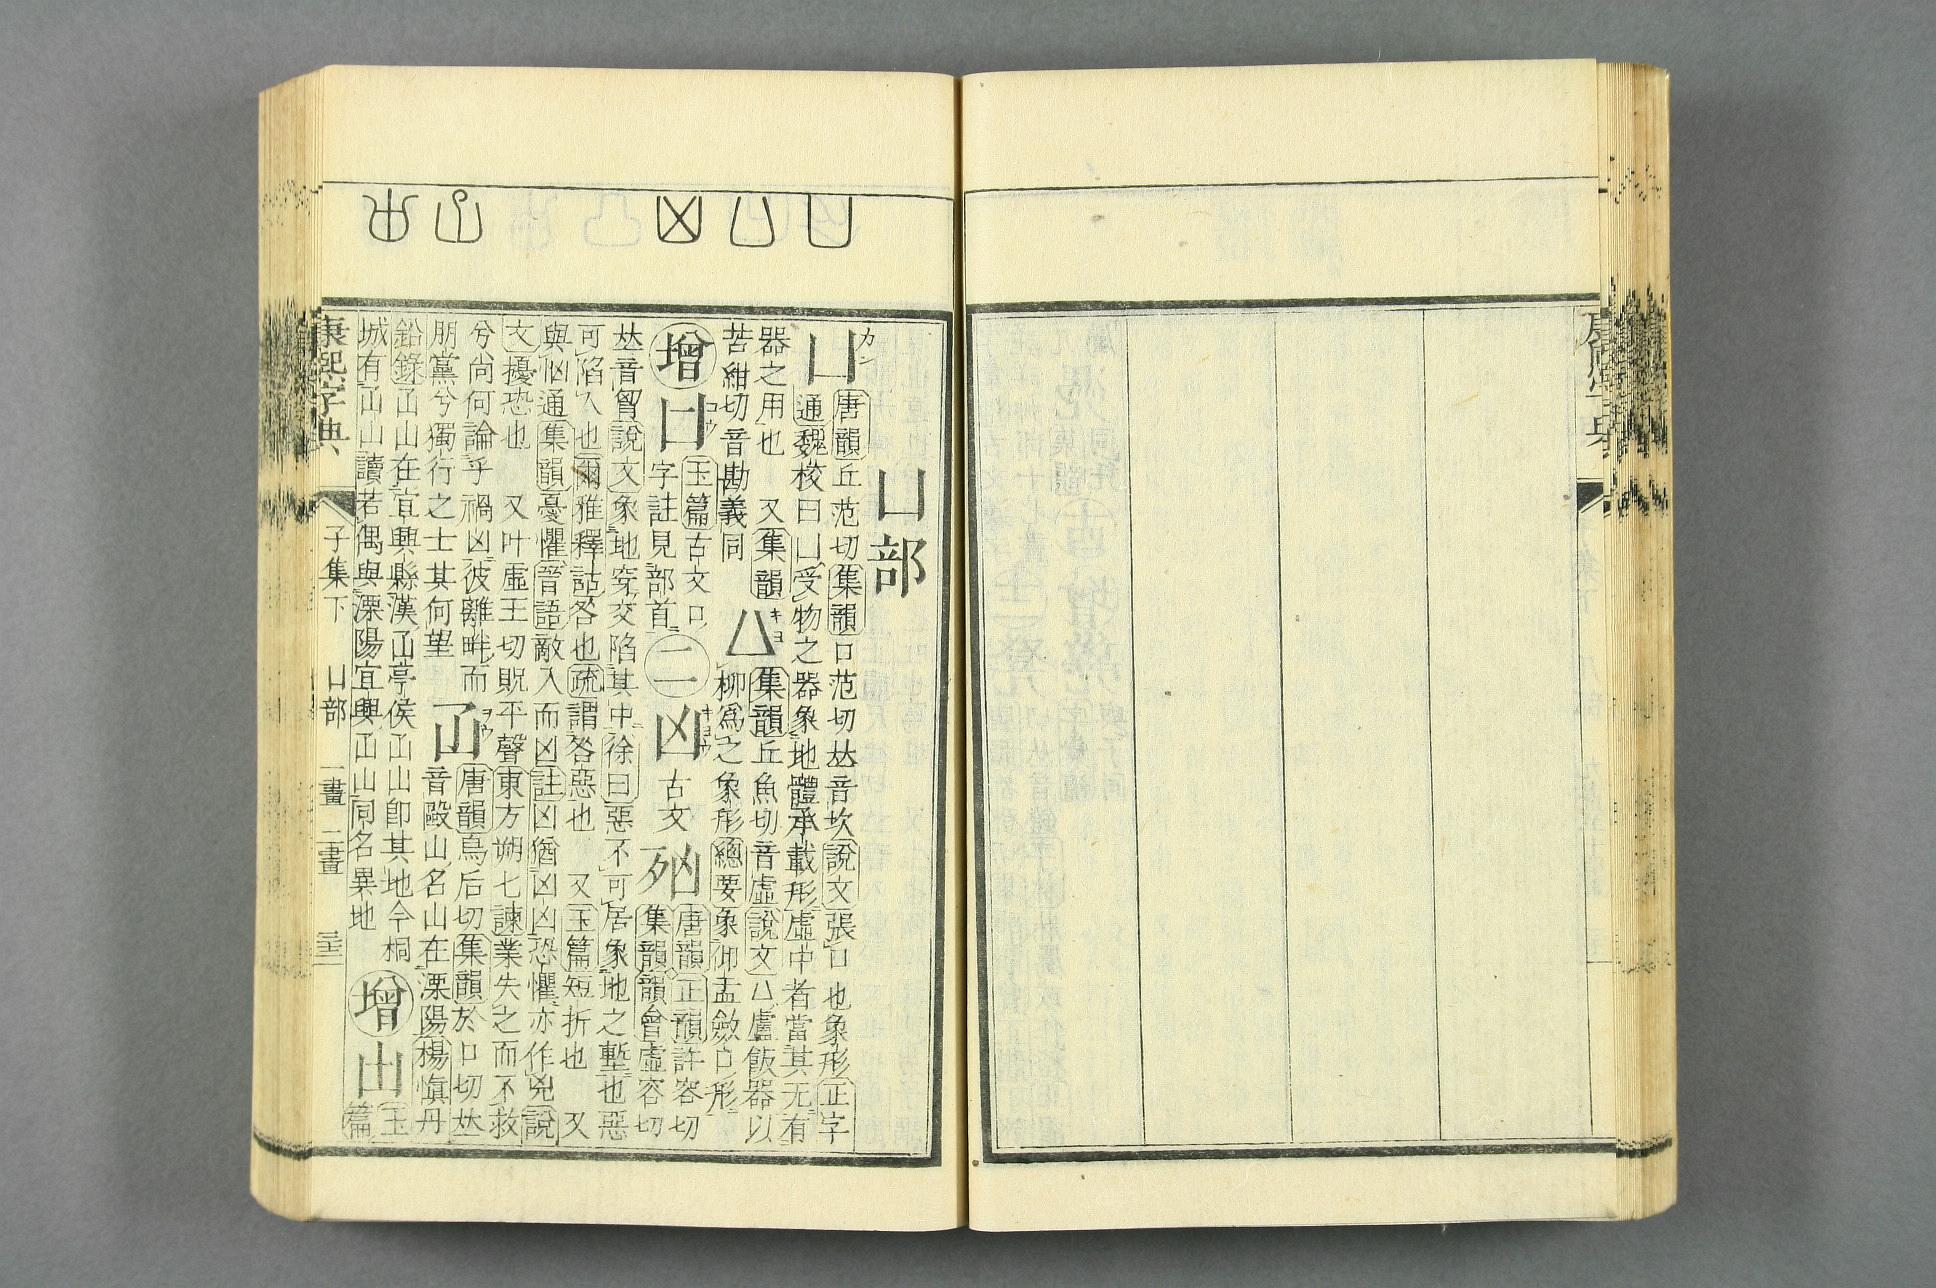 凵部
凵 カン 唐韻丘范切集韻口范切𠀤音坎說文張口也象形正字
通魏校曰凵受物之器象地體承載形虛中者當其无有
器之用也 又集韻
苦紺切音勘義同
キヨ 集韻丘魚切音虛說文凵盧飯器以
柳爲之象形總要象仰盂斂口形
增 コウ 玉篇古文口
字註見部首
二 凶 キヨウ 古文 唐韻正韻許容切
集韻韻會虛容切
𠀤音胷說文象地穿交陷其中徐曰惡不可居象地之塹也惡
可陷人也爾雅釋詁咎也疏謂咎惡也 又玉篇短折也 又
與恟通集韻憂懼晉語敵入而凶註凶猶凶凶恐懼亦作兇說
文擾恐也 又叶虛王切貺平聲東方朔七諫業失之而不救
兮尚何論乎禍凶彼離畔而
朋黨兮獨行之士其何望
ヲウ 唐韻烏后切集韻於口切𠀤
音毆山名山在溧陽楊愼丹
鉛錄山在宜興縣漢亭侯山卽其地今桐
城有山讀若偶與溧陽宜興山同名異地
增 玉
篇
康熙字典 子集下 凵部 一畫 二畫 三三
康熙字典